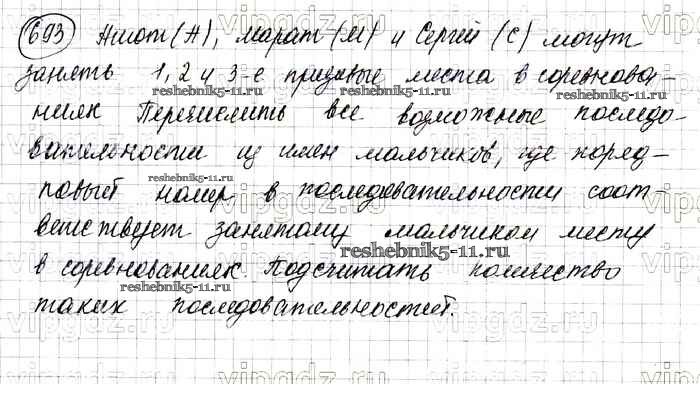 693 Антон (А), Марат (М) и Сергей (С) могут
занять 1, 2 и 3-е призовые места в соревнова-
ниях Перечислить все возможные последо-
вательности из имен мальчиков, где поряд-
ковый номер в последовательности соот
ветствует занятому мальчиком месту
в соревнованиях. Подсчитать количество
таких последовательностей.
reshebnik5-11.ru
reshebnik5-11.ru
reshebnik5-11.ru
reshebnik5-11.ru
reshebnik5-11.ru
reshebnik5-11.ru
vipgdz.ru